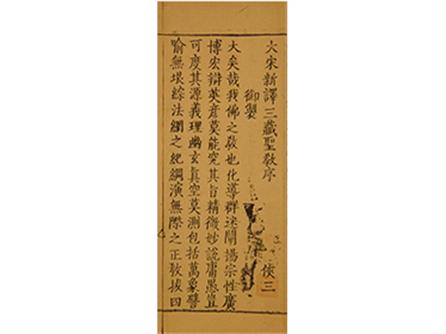 大宋新譯三藏聖教序
御製
俠三
大矣哉我佛之教也化導群迷闡揚宗性廣
博宏辯英彥莫能究其旨精微妙說庸愚豈
可度其源義理幽玄真空莫測包括萬象譬
喻無垠綜法網之紀綱演無際之正教拔四